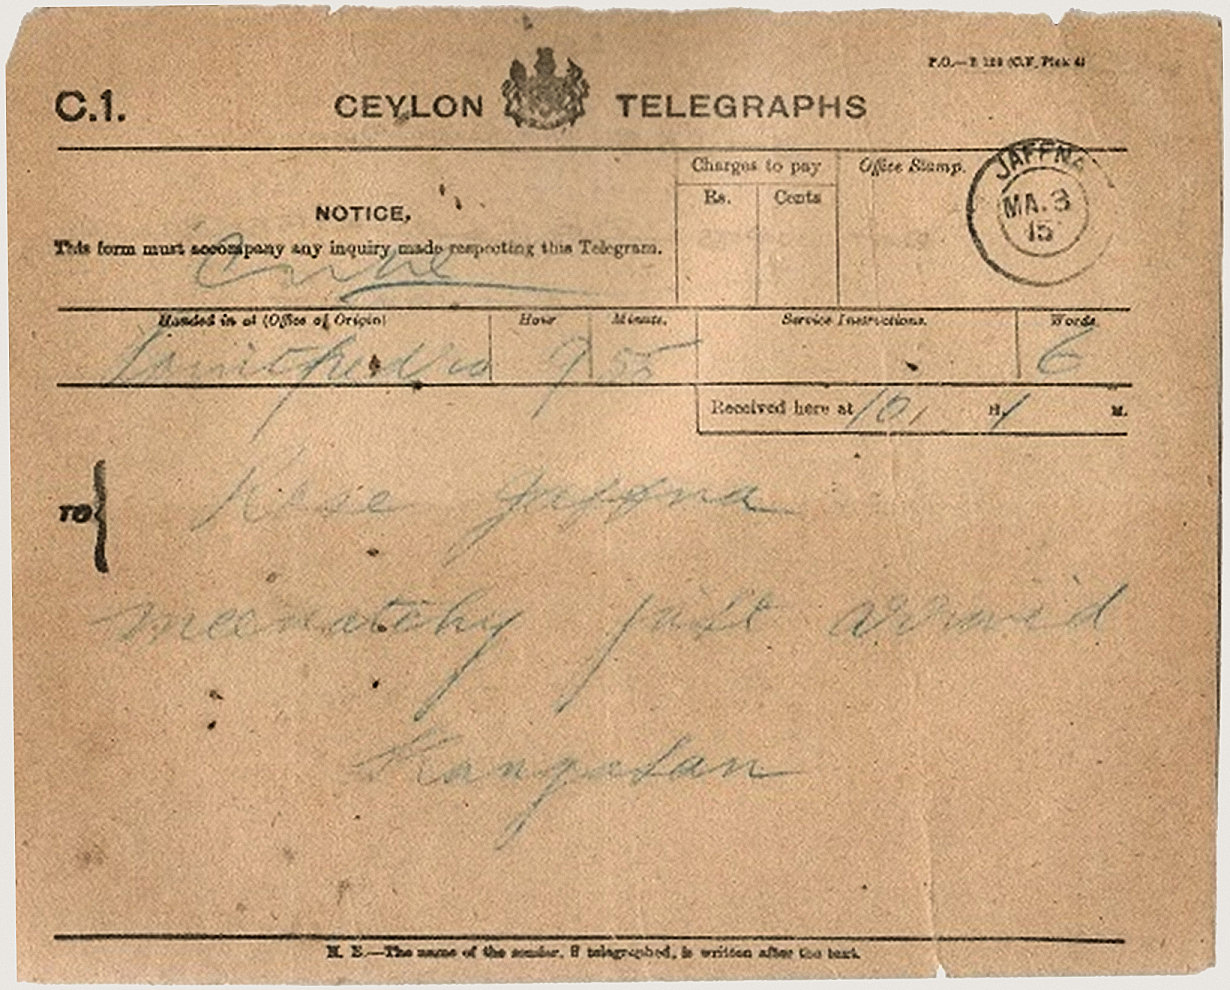 P.O.—
C.1. CEYLON TELEGRAPHS
Charges to pay
Office Stamp.
Rs. Cents
JAFFNA
MA. 3
15
NOTICE,
This form must accompany any inquiry made respecting this Telegram.
Handed in at (Office of Origin) Hour Minute. Service Instructions. Words.
9 55 6
Received here at 10, H. 1 M.
TO Kase Jaffna
meenatchy just arrived
Kangasan
N. B.—The name of the sender, if telegraphed, is written after the text.